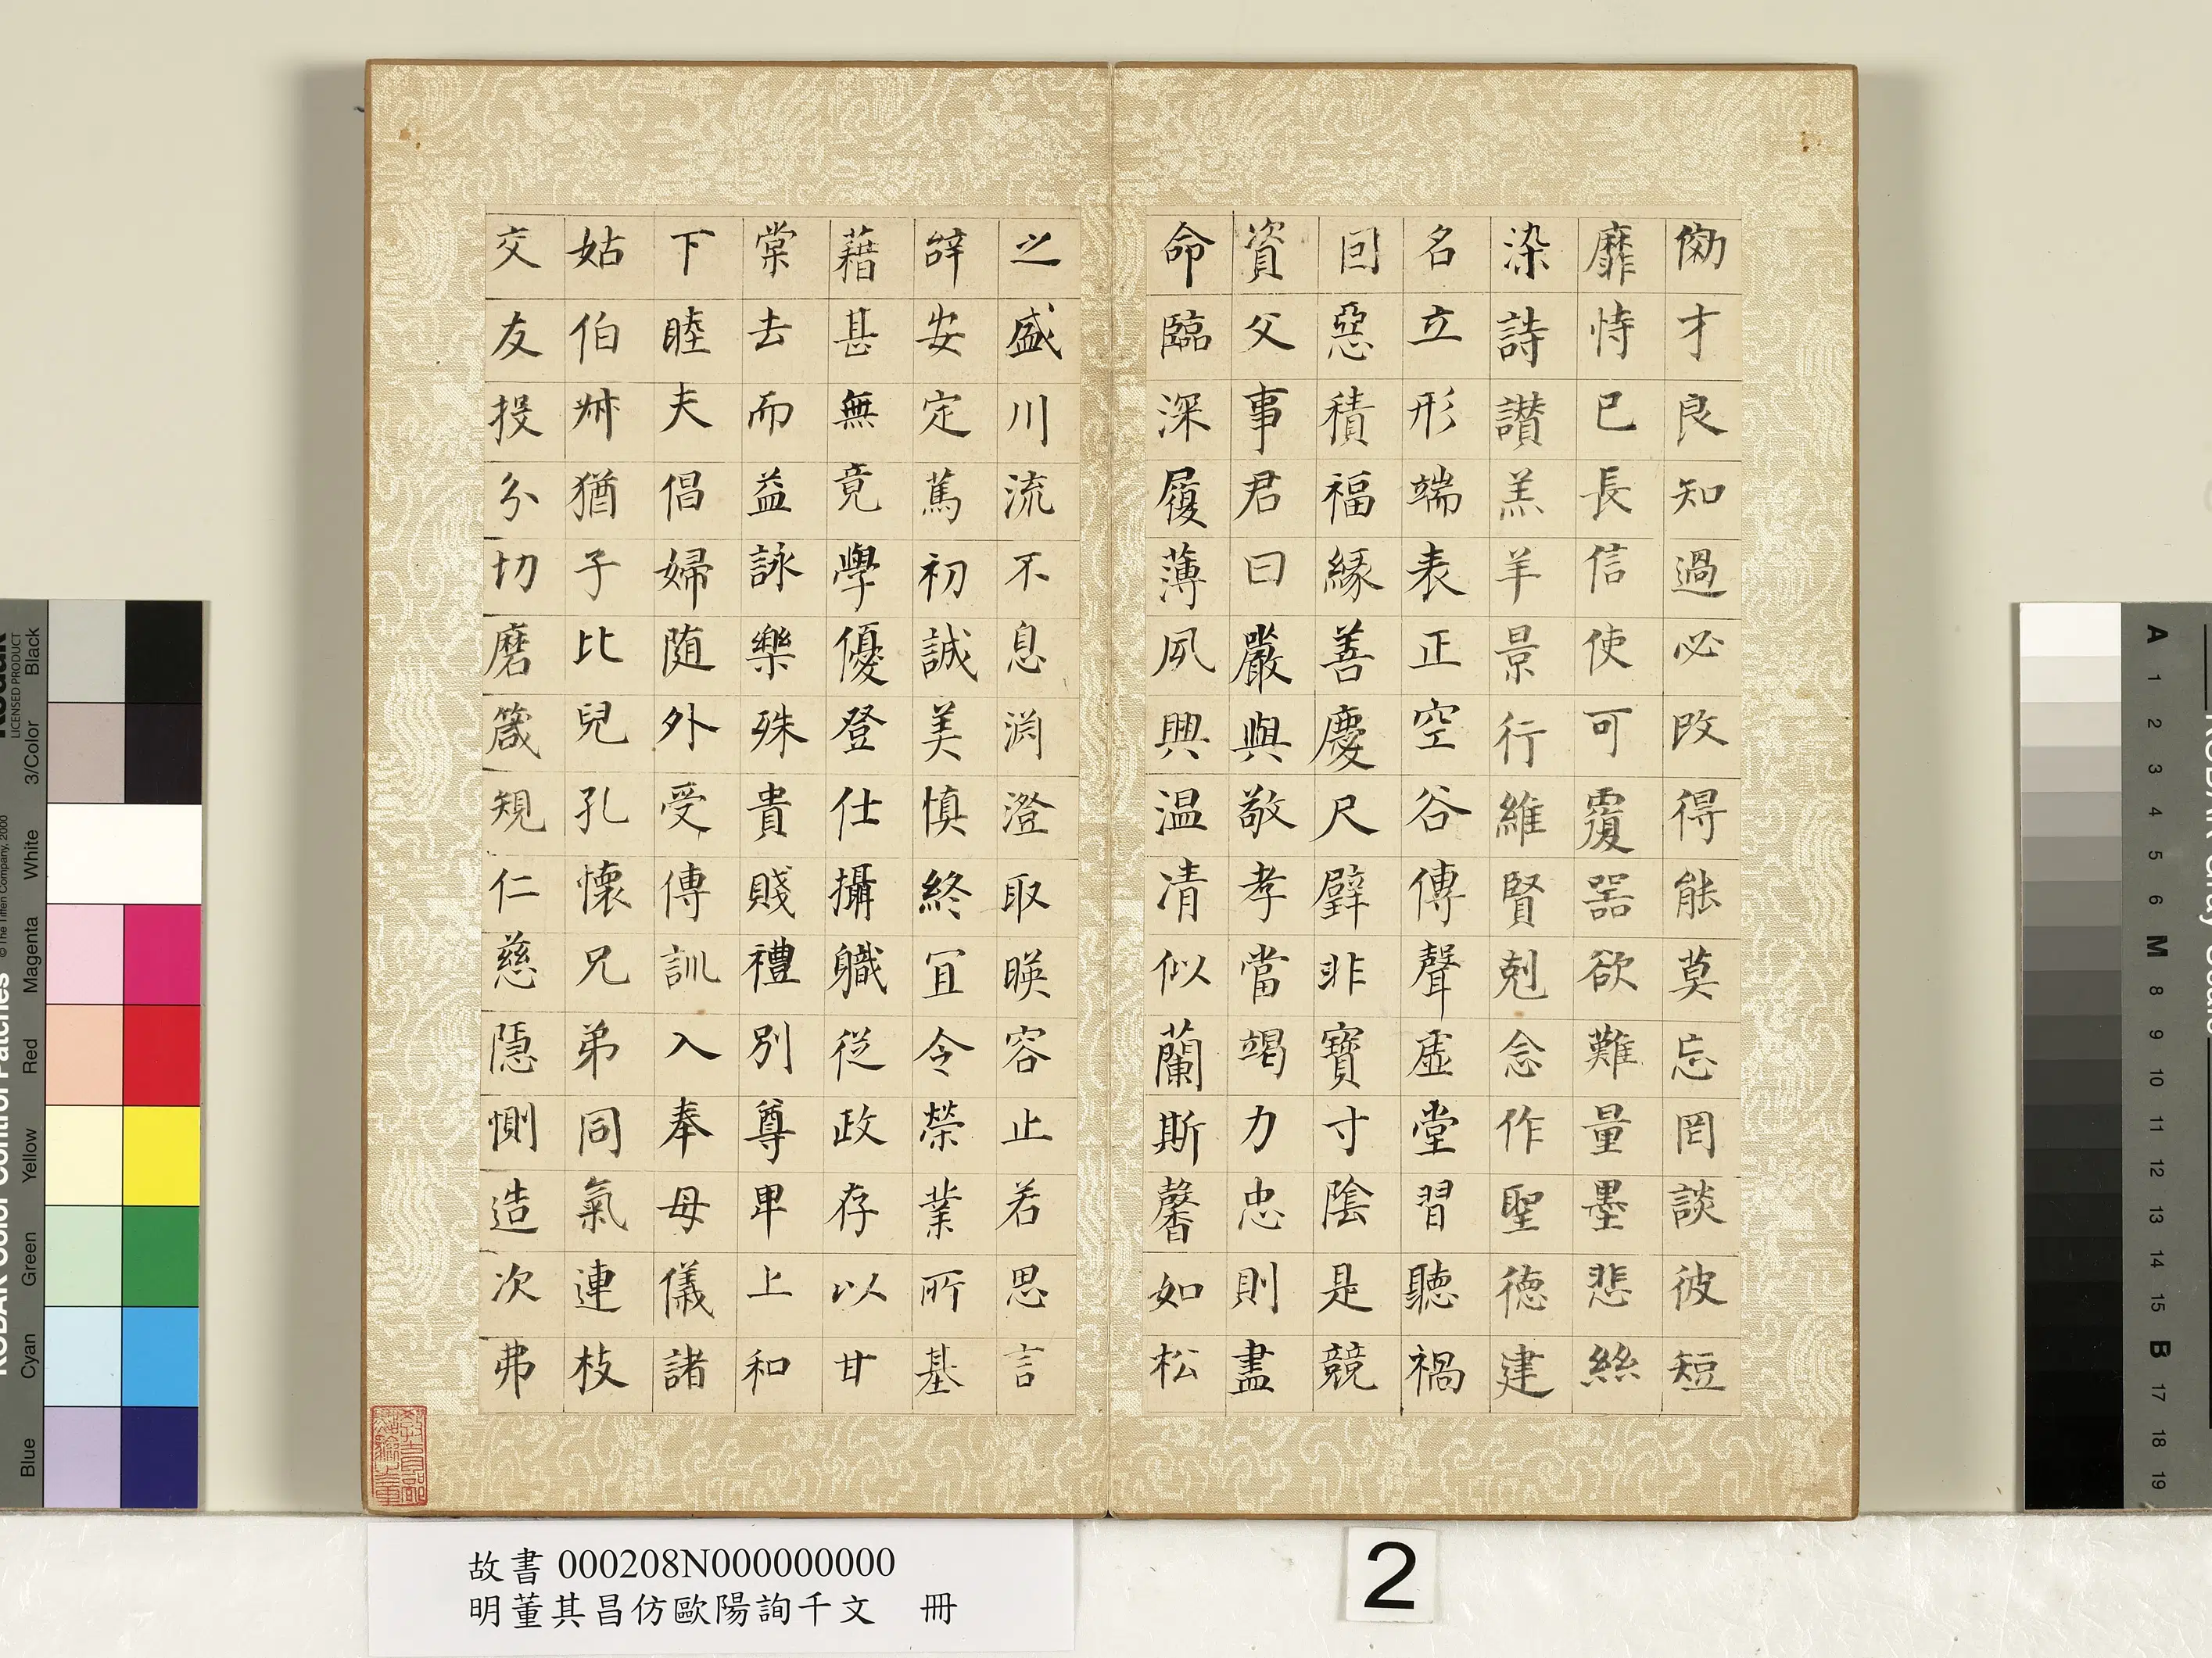 効才良知過必改得能莫忘罔談彼短
靡恃已長信使可覆器欲難量墨悲絲
染詩讚羔羊景行維賢剋念作聖德建
名立形端表正空谷傳聲虛堂習聽禍
因惡積福緣善慶尺璧非寶寸陰是競
資父事君曰嚴與敬孝當竭力忠則盡
命臨深履薄夙興温凊似蘭斯馨如松
之盛川流不息渕澄取暎容止若思言
辞安定篤初誠美慎終宜令榮業所基
藉甚無竟學優登仕攝職從政存以甘
棠去而益詠樂殊貴賤禮別尊卑上和
下睦夫倡婦随外受傅訓入奉母儀諸
姑伯叔猶子比兒孔懷兄弟同氣連枝
交友投分切磨箴規仁慈隱惻造次弗
故書 000208N000000000
明董其昌仿歐陽詢千文 冊
2
KODAK Color Control Patches
© The Tiffen Company, 2000
Kodak
LICENSED PRODUCT
Blue
Cyan
Green
Yellow
Red
Magenta
White
3/Color
Black
KODAK Gray Scale
A 1 2 3 4 5 6 M 8 9 10 11 12 13 14 15 B 17 18 19